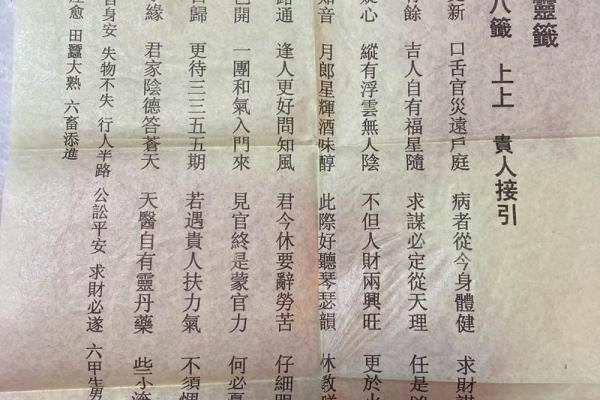 靈籤
八籤 上上 貴人接引
更新 口舌官災遠戶庭 病者從今身體健 求財謀
有餘 吉人自有福星隨 求謀必定從天理 任是
疑心 縱有浮雲無人陰 不但人財兩興旺 更於
知音 月郎星輝酒味醇 此際好聽琴瑟韻 休教
路通 逢人更好問知風 君今休要辭勞苦 仔細
已開 一團和氣入門來 見官終是蒙官力 何必
歸 更待三三五五期 若遇貴人扶力氣 不須
緣 君家陰德答蒼天 天醫自有靈丹藥 些小
身安 失物不失 行人半路 公訟平安 求財必遂 六甲生男
愈 田蠶大熟 六畜添進